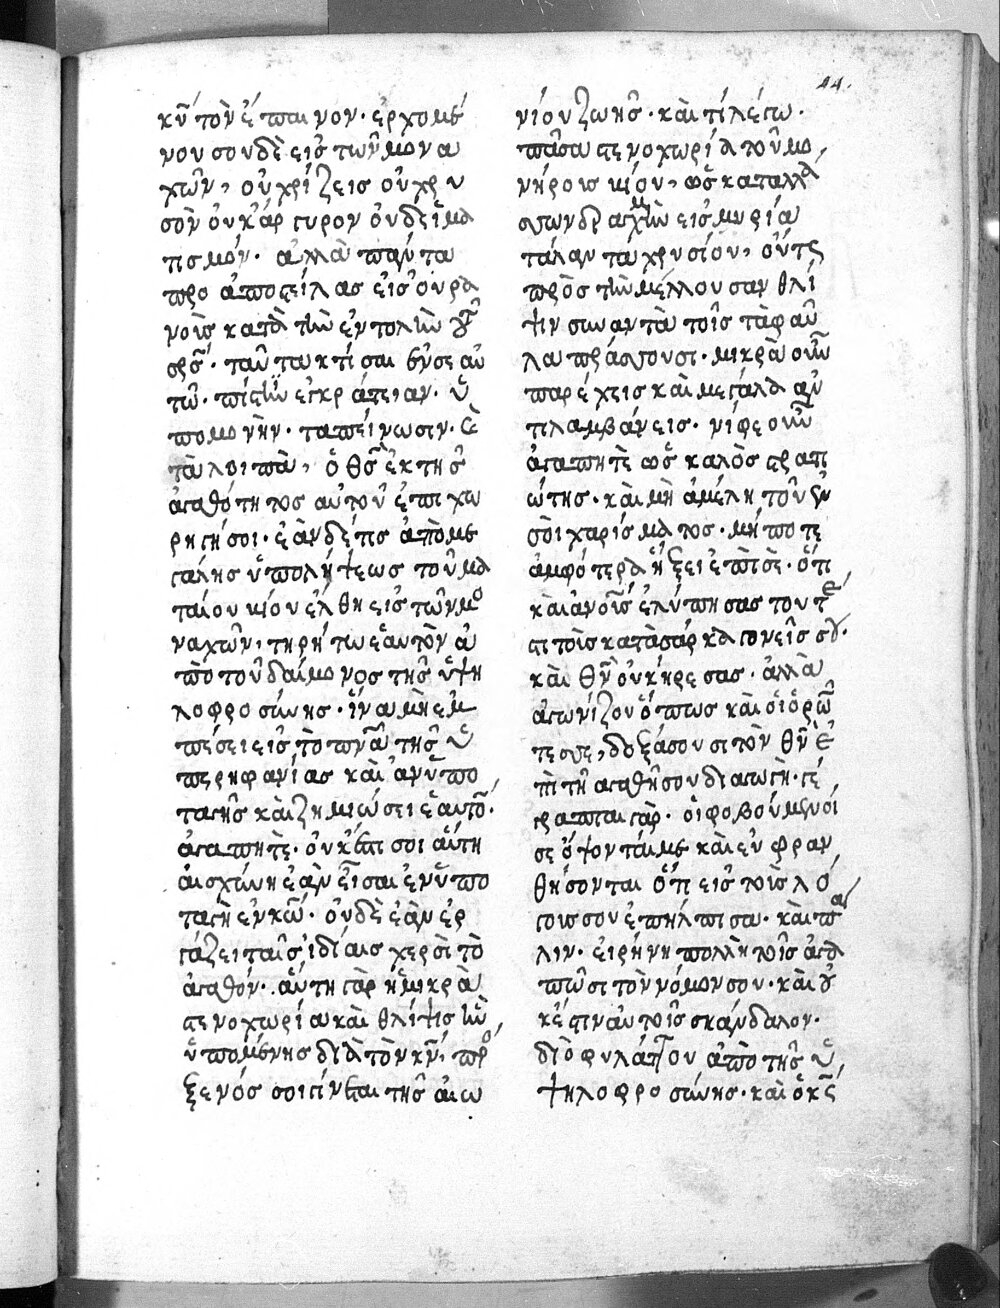 44.
κν̄ τὸν ἔπαινον· ἐρχομέ
νου σου δὲ εἰς τῶν μονα
χῶν, οὐ χρίζεις οὐ χρυ
σὸν οὐκ ἀργυρον οὐδεῖμα
τισμόν· ἀλλὰ πάντα
προαποστείλας εἰς οὐρα
νοὺς κατὰ τὴν ἐντολὴν τοῦ
σρ̄ς· ταῦτα κτίσαι ἐν σεαυ
τῶ· πίστιν ἐγκράτειαν· ὑ
πομονὴν· ταπείνωσιν· καὶ
τὰ λοιπὰ, ὁ θς̄ ἐκ τῆς
ἀγαθότητος αὐτοῦ ἐπιχω
ρηγήσοι· ἐὰν δέ τις ἀπὸ με
γάλης ὑπολήψεως τοῦ μα
ταίου βίου ἔλθη εἰς τῶν μο
ναχῶν, τηρήτω ἑαυτὸν ἀ
πὸ τοῦ δαίμονος τῆς ὑψη
λοφροσύνης· ἵνα μὴ ἐμ
πέσει εἰς τὸ πνᾶ τῆς ὑ
περηφανίας καὶ ἀνυπο
ταγῆς καὶ ζημιώσει ἑαυτόν·
ἀγαπητὲ· οὐκ ἔστι σοι αὕτη
αἰσχύνη ἐὰν εἶσαι ἐν ὑπο
ταγῆ ἐν κῶ· οὐδὲ ἐὰν ἐρ
γάζει ταῖς ἰδίαις χερσὶ τὸ
ἀγαθόν· αὕτη γὰρ ἡ μικρὰ
στενοχωρία καὶ θλίψις ἣν
ὑπομένης διὰ τὸν κν̄, προ
ξενός σοι γίνεται τῆς αἰω
νίου ζωῆς· καὶ τί λέγω·
πᾶσα στενοχωρία τοῦ μο
νήρους βίου, ὡς καταλλα
γὴν δραχμῶν εἰς μυρία
τάλαντα χρυσίου, οὕτως
πρὸς τὴν μέλλουσαν θλί
ψιν συναντὰ τοῖς τὰ φαῦ
λα πράσσουσι· μικρὰ οὖν
παρέχεις καὶ μεγάλα ἀν
τιλαμβάνεις· νίφε οὖν
ἀγαπητὲ ὡς καλὸς στρατι
ώτης· καὶ μὴ ἀμέλη τοῦ ἐν
σοὶ χαρίσματος· μήποτε
ἀμφότερα ἥξει ἐπὶ σὲ· ὅτι
καὶ ἀνοῖς ἐλύπησας τουτέ
στι τοῖς κατὰ σάρκα γονεῖς σου·
καὶ θν̄ οὐκ ἤρεσας· ἀλλὰ
ἀγωνίζου ὅπως καὶ οἱ ὁρῶν
τες σε, δοξάσουσι τὸν θν̄ ἐ
πὶ τῆ ἀγαθῆ σου διαγωγὴ· γέ
γραπται γάρ· οἱ φοβούμενοί
σε ὄψονταί με καὶ εὐφραν
θήσονται ὅτι εἰς τοὺς λό
γους σου ἐπήλπισα· καὶ πά
λιν· εἰρήνη πολλὴ τοῖς ἀγα
πῶσι τὸν νόμον σου· καὶ οὐ
κ ἔστιν αὐτοῖς σκάνδαλον·
διὸ φυλάττου ἀπὸ τῆς ὑ
ψηλοφροσύνης· καὶ ὁ κς̄